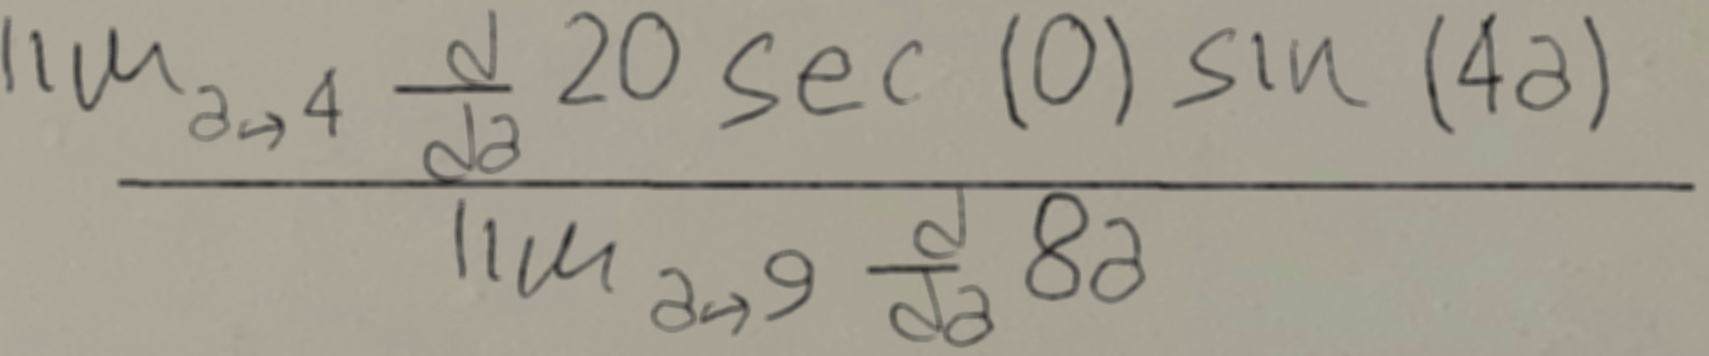 lim_{a→4} \frac{d}{da} 20 sec (0) sin (4a)
lim_{a→9} \frac{d}{da} 8a